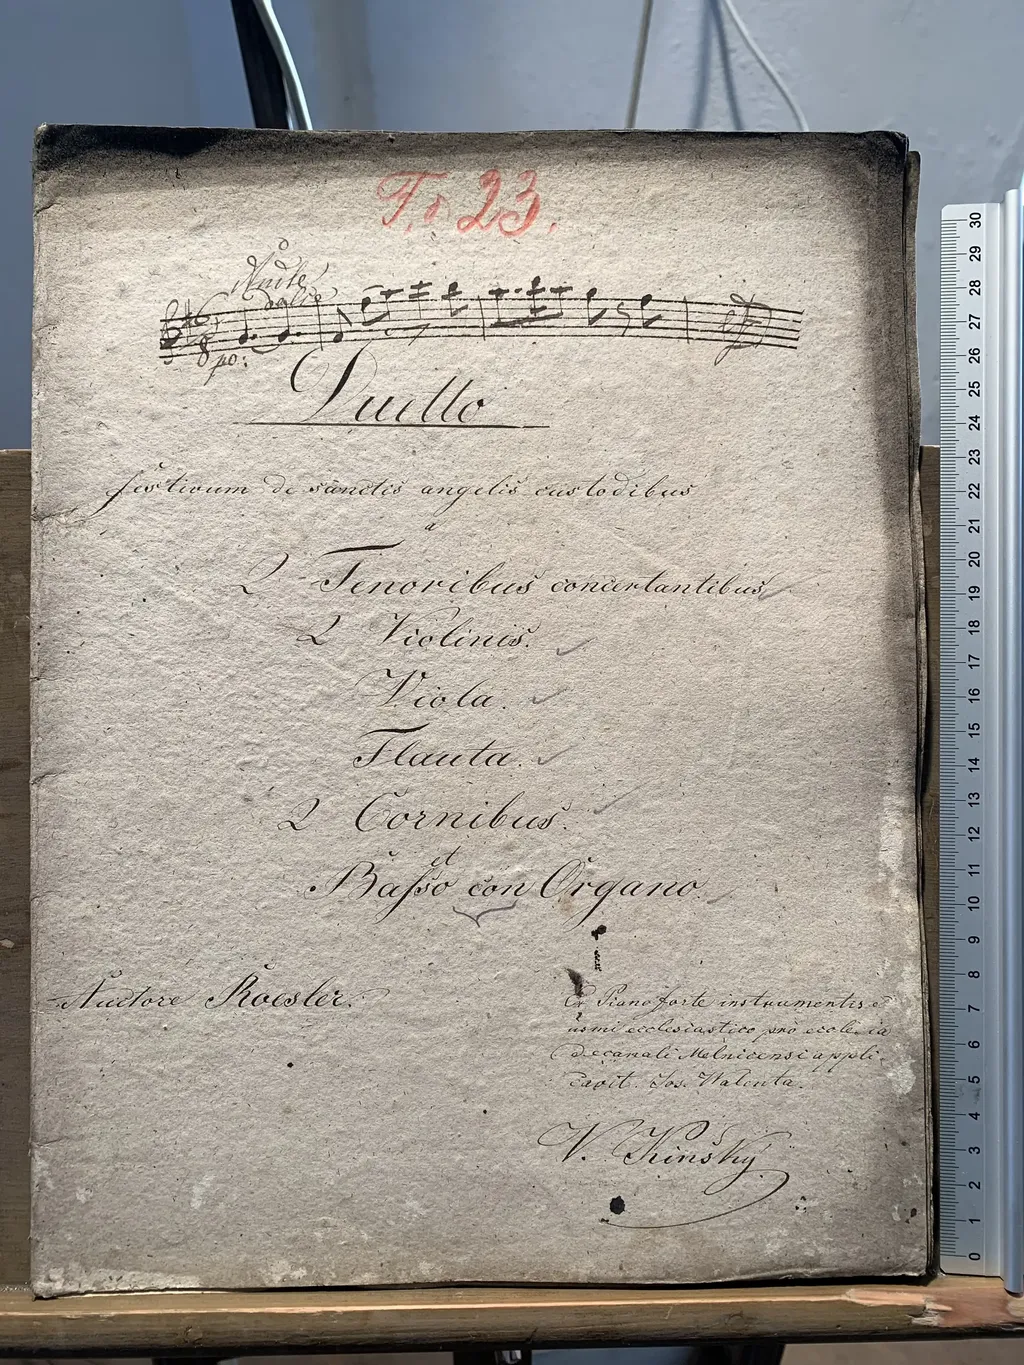 F. d 23.
Andte
6
8
po:
Duetto
festivum de sanctis angelis custodibus
a
2 Tenoribus concertantibus
2 Violinis.
Viola.
Flauta.
2 Cornibus.
et
Baſso con Organo.
Auctore Roesler.
Ex Pianoforte instrumentis
usmi ecclesiastico pro
decanali Melnicensi appli-
cavit. Jos. Walenta.
V. Kinsky
30
29
28
27
26
25
24
23
22
21
20
19
18
17
16
15
14
13
12
11
10
9
8
7
6
5
4
3
2
1
0